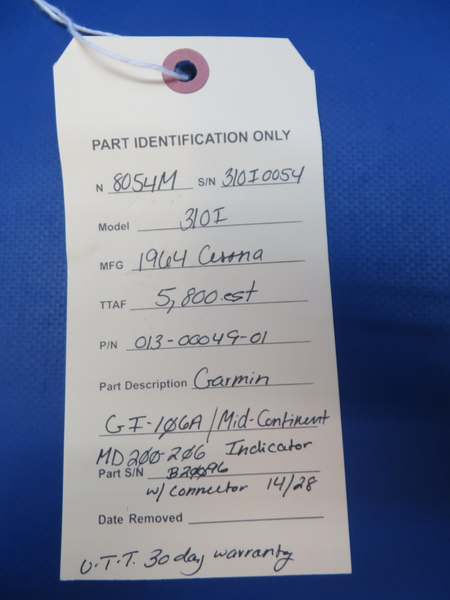 PART IDENTIFICATION ONLY
N 8054M S/N 310I0054
Model 310I
MFG 1964 Cessna
TTAF 5,800.est
P/N 013-00049-01
Part Description Garmin
GI-106A/Mid-Continent
MD200-206 Indicator
Part S/N B20096
w/ connector 14/28
Date Removed
U.T.T. 30 day warranty